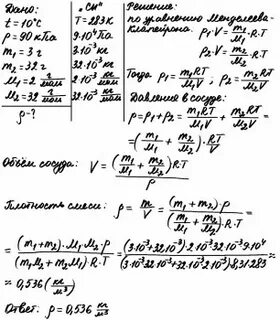 Дано:
t = 10°C
p = 90 кПа
m₁ = 3 г
m₂ = 32 г
M₁ = 2 г/моль
M₂ = 32 г/моль
ρ - ?
„СИ“
T = 283 К
9·10⁴ Па
3·10⁻³ кг
32·10⁻³ кг
2·10⁻³ кг/моль
32·10⁻³ кг/моль
Решение:
по уравнению Менделеева
Клапейрона: P₁·V = m₁/M₁·R·T
P₂·V = m₂/M₂·R·T
Тогда P₁ = m₁RT/M₁V; P₂ = m₂RT/M₂V
Давление в сосуде:
p = p₁ + p₂ = m₁RT/M₁V + m₂RT/M₂V =
= (m₁/M₁ + m₂/M₂)·RT/V
Объём сосуда: V = (m₁/M₁ + m₂/M₂)R·T/p
Плотность смеси: ρ = m/V = (m₁+m₂)·p/(m₁/M₁ + m₂/M₂)·R·T =
= (m₁+m₂)·M₁·M₂·p/(m₁M₂+m₂M₁)·R·T = (3·10⁻³+32·10⁻³)·2·10⁻³·32·10⁻³·9·10⁴/(3·10⁻³·32·10⁻³+32·10⁻³·2·10⁻³)·8,31·283 ≈
≈ 0,536 (кг/м³)
Ответ: ρ = 0,536 кг/м³